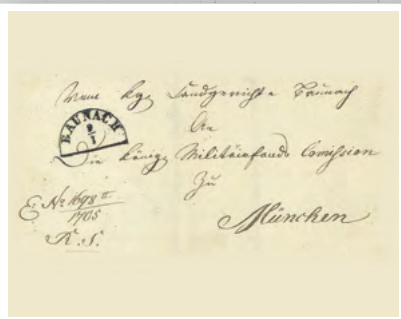 Vom kgn Landgerichte Baunach
BAUNACH
9
1
An
Die königl Militärfonds Comission
Zu
München
E. No 1698 II
1705
R. S.